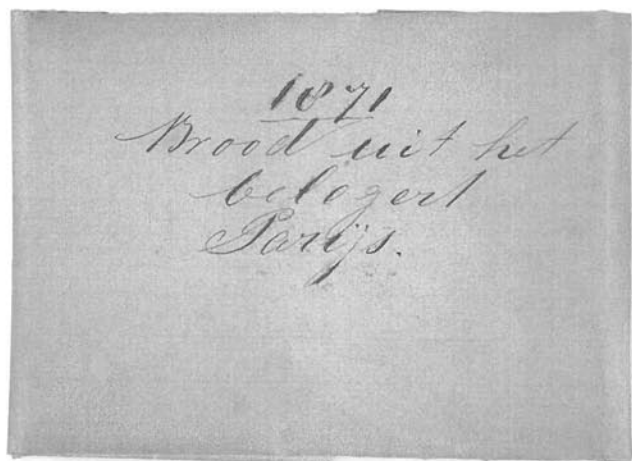 1871
Brood uit het
belegert
Parijs.